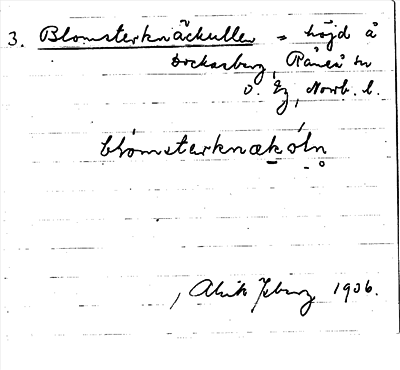 3. Blomsterknäckullen = höjd å
Dockasberg, Råneå sn
Ö. Ey, Norrb. l.
blómsterknækóln
Alrik Ysberg 1936.